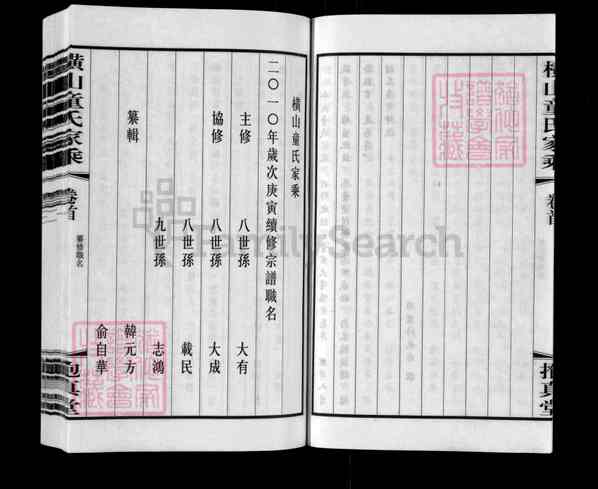 橫山童氏家乘
二〇一〇年歲次庚寅續修宗譜職名
主修 八世孫 大有
協修 八世孫 大成
八世孫 載民
九世孫 志鴻
纂輯 韓元方
俞自華
橫山童氏家乘 卷首 纂修職名 抱真堂
橫山童氏家乘 卷首 抱真堂
FamilySearch